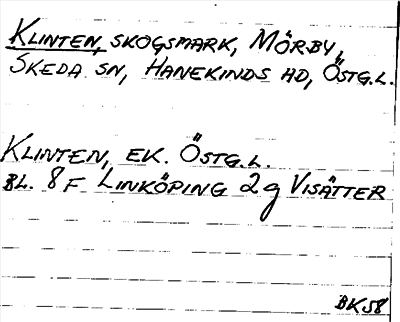 KLINTEN, SKOGSMARK, MÖRBY,
SKEDA SN, HANEKINDS HD, ÖSTG.L.
KLINTEN, EK. ÖSTG.L.
BL. 8F LINKÖPING 2g VISÄTTER
BK58